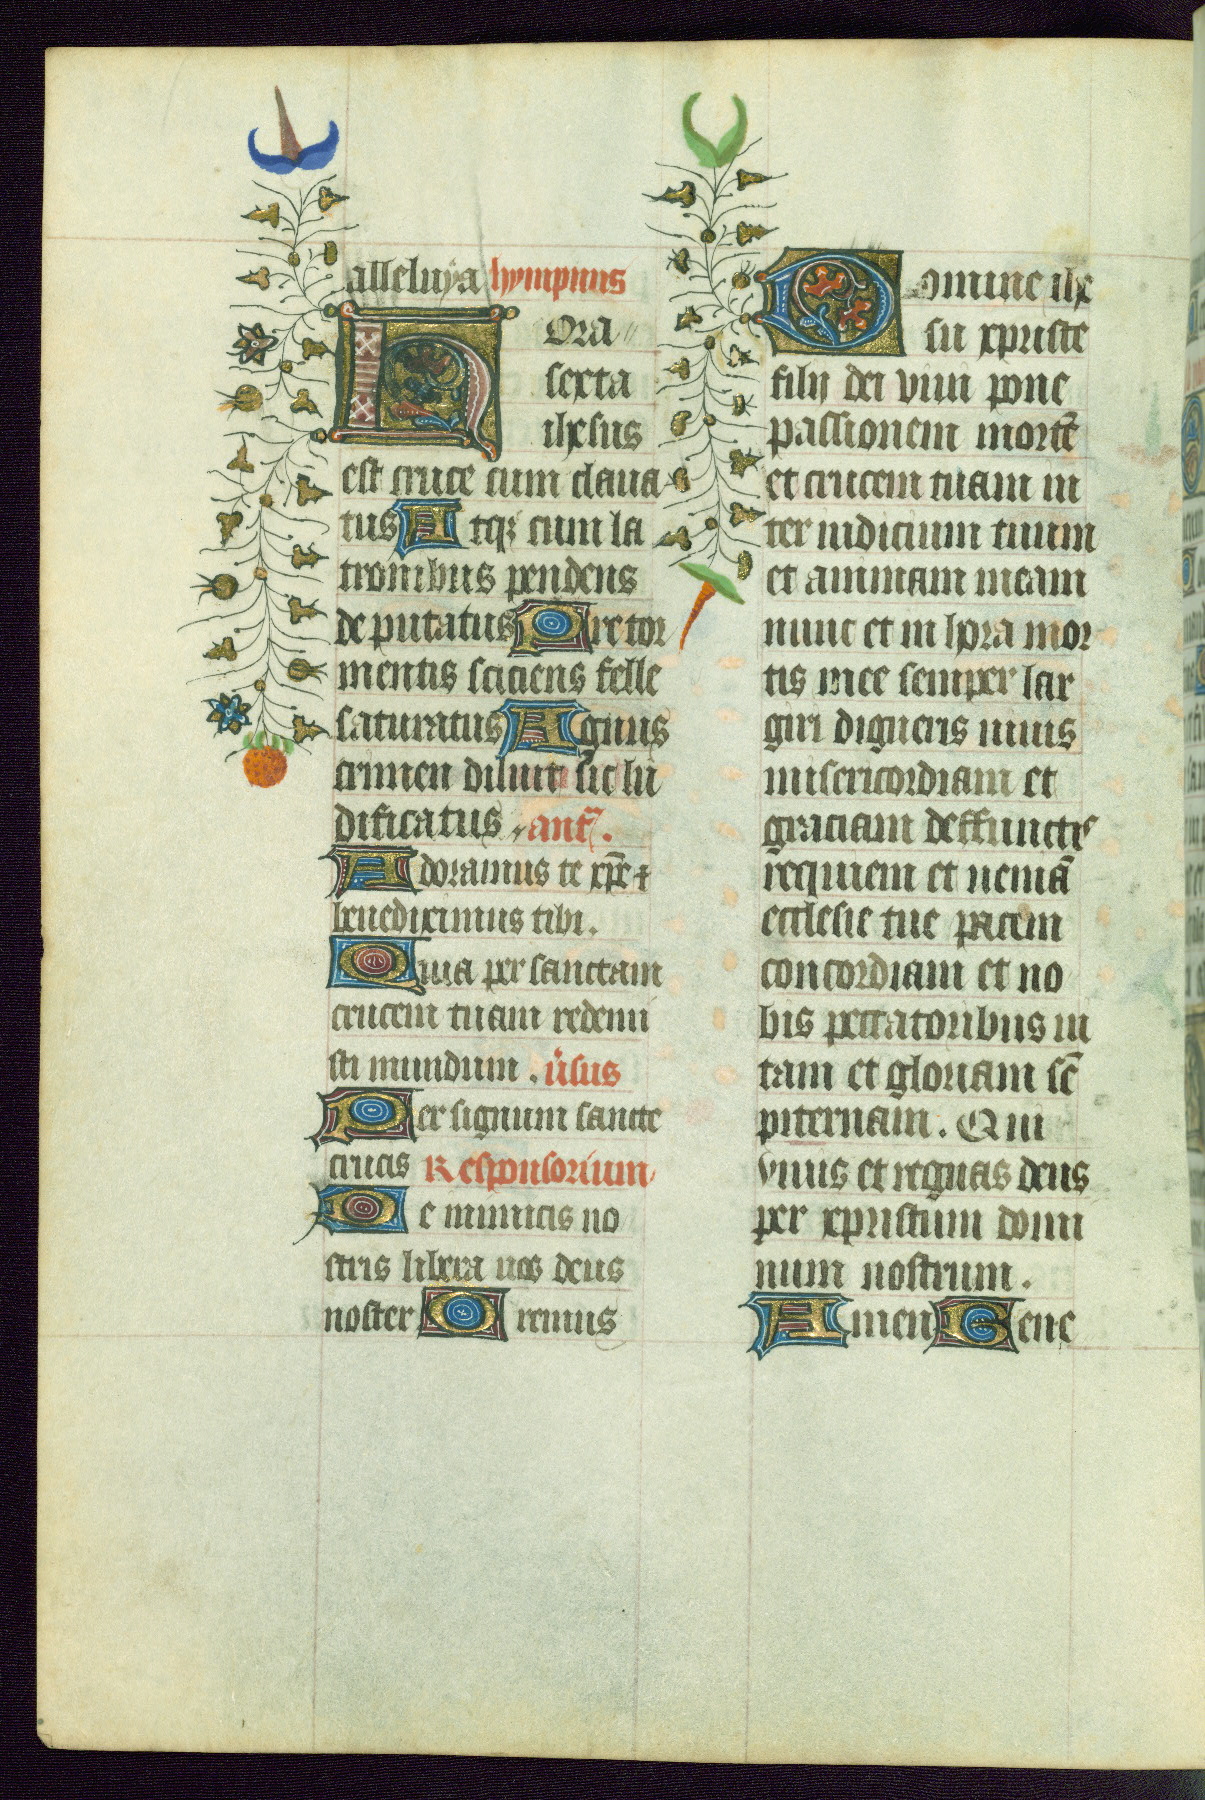 alleluya hympnus
Hora
sexta
ihesus
est cruce cum claua
tus Atqz cum la
tronibus pendens
deputatus Pre tor
mentis sciciens felle
saturatus Agnus
crimen diluit sic lu
dificatus. ant̃.
Adoramus te xp̃e ⁊
benediximus tibi.
Quia per sanctam
crucem tuam redemi
sti mundum. ṽsus
Per signum sancte
crucis Responsorium
De inimicis no
stris libera nos deus
noster Oremus
Domine ihe
su xpriste
filij dei viui pone
passionem mortẽ
et crucem tuam in
ter iudicium tuum
et animam meam
nunc et in hora mor
tis mee semper lar
giri digneris uiuis
misericordiam et
graciam deffunctis
requiem et ueniã
ecclesie tue pacem
concordiam et no
bis peccatoribus ui
tam et gloriam sẽ
piternam. Qui
viuis et regnas deus
per xpristum domi
num nostrum.
Amen Gene